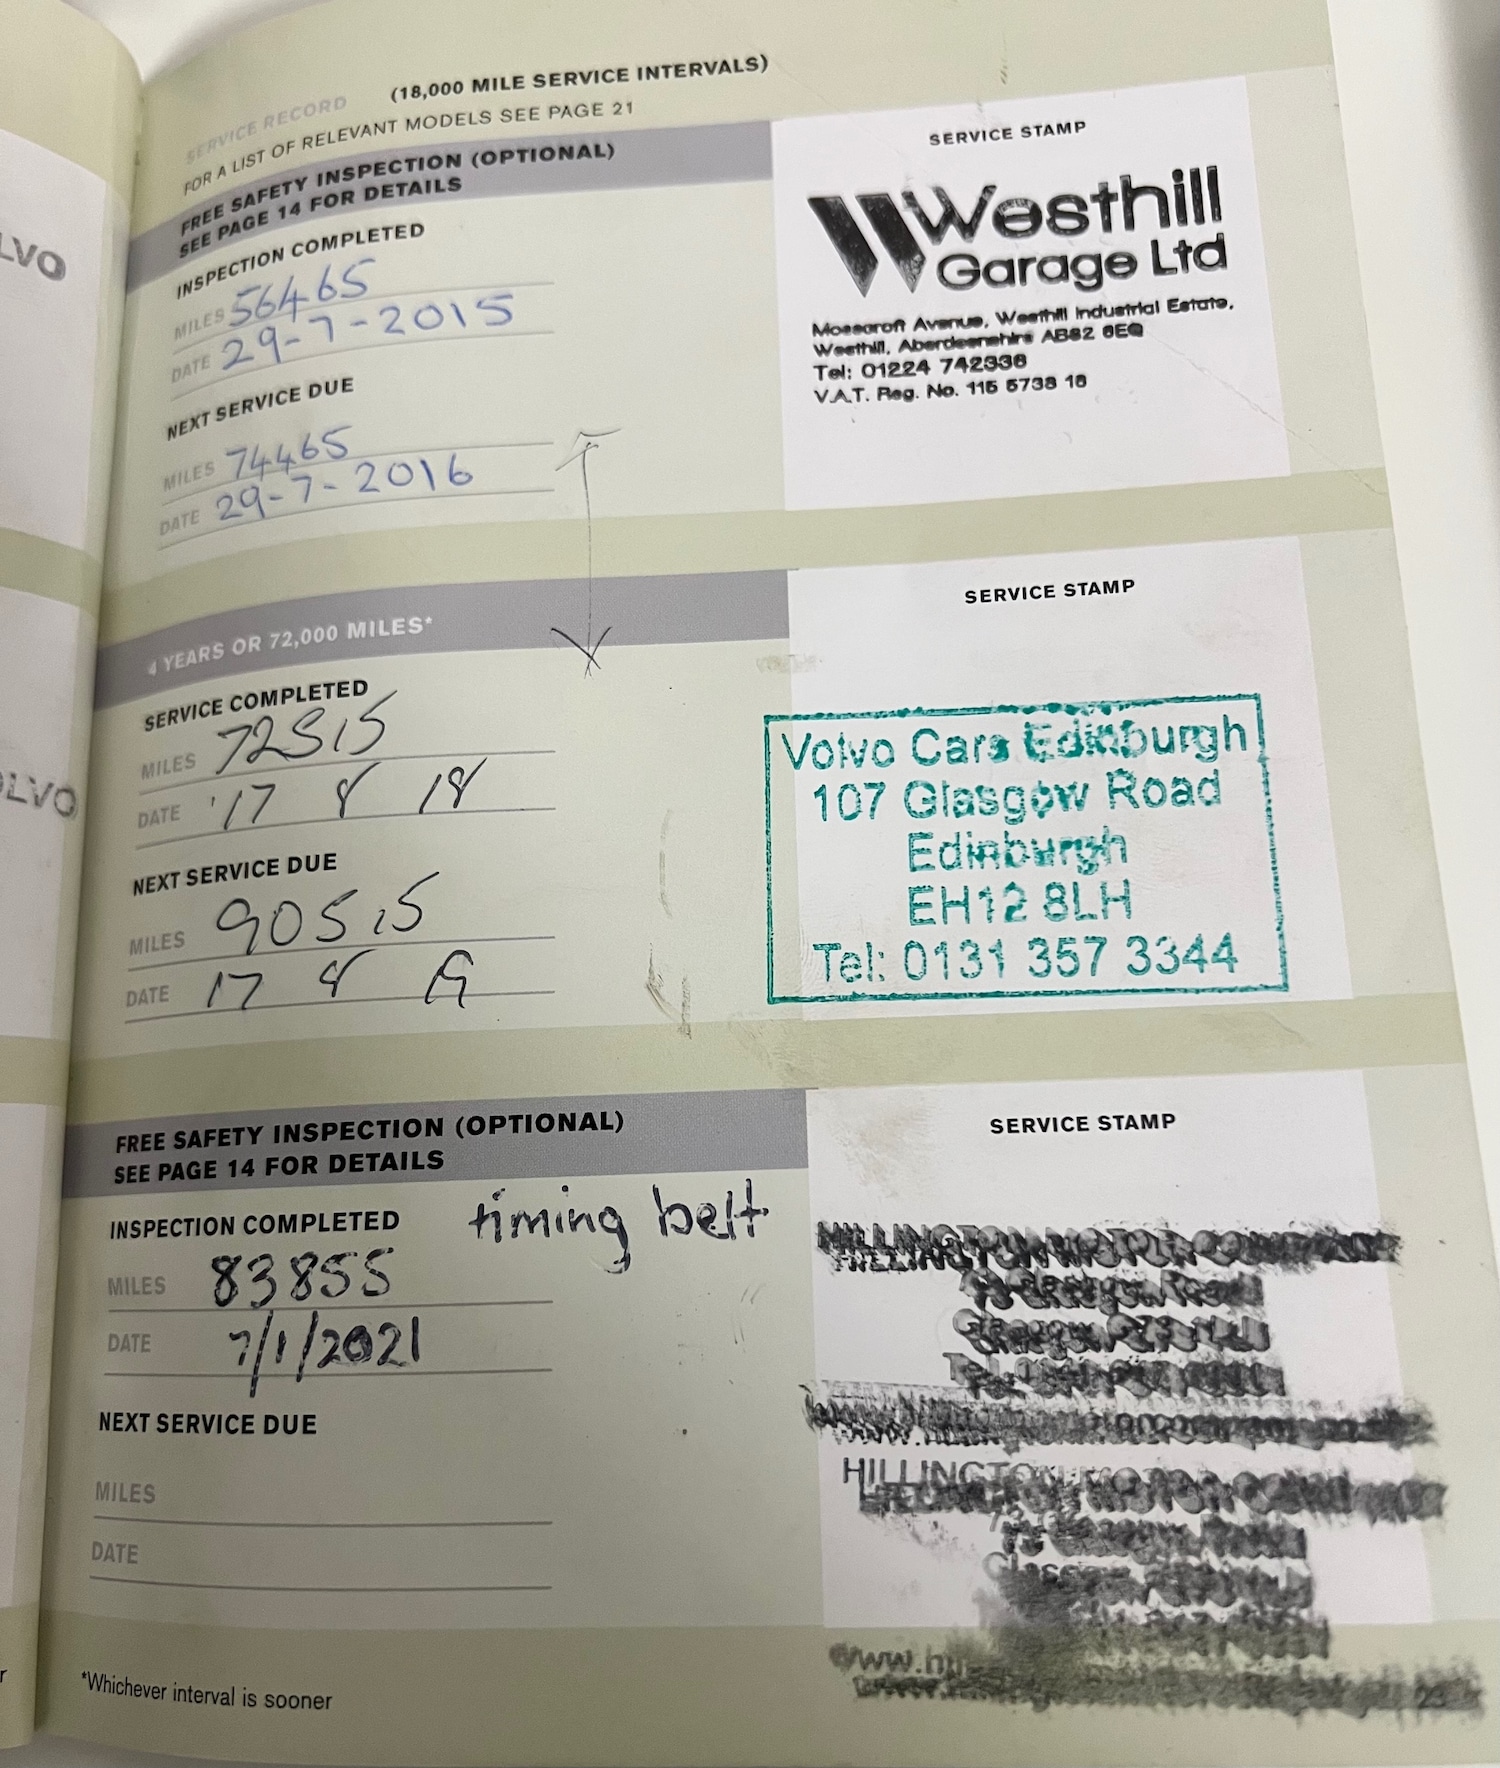 LVO
OLVO
r
SERVICE RECORD (18,000 MILE SERVICE INTERVALS)
FOR A LIST OF RELEVANT MODELS SEE PAGE 21
FREE SAFETY INSPECTION (OPTIONAL)
SEE PAGE 14 FOR DETAILS
INSPECTION COMPLETED
MILES 56465
DATE 29-7-2015
NEXT SERVICE DUE
MILES 74465
DATE 29-7-2016
SERVICE STAMP
Westhill
Garage Ltd
Mosscroft Avenue, Westhill Industrial Estate,
Westhill, Aberdeenshire AB32 6EQ
Tel: 01224 742338
V.A.T. Reg. No. 115 5738 18
4 YEARS OR 72,000 MILES*
SERVICE COMPLETED
MILES 72515
DATE 17 8 18
NEXT SERVICE DUE
MILES 90515
DATE 17 8 19
SERVICE STAMP
Volvo Cars Edinburgh
107 Glasgow Road
Edinburgh
EH12 8LH
Tel: 0131 357 3344
FREE SAFETY INSPECTION (OPTIONAL)
SEE PAGE 14 FOR DETAILS
INSPECTION COMPLETED timing belt
MILES 83855
DATE 7/1/2021
NEXT SERVICE DUE
MILES
DATE
SERVICE STAMP
HILLINGTON MOTOR
Glasgow Road
Glasgow
HILLINGTON MOTOR
Glasgow
*Whichever interval is sooner
23